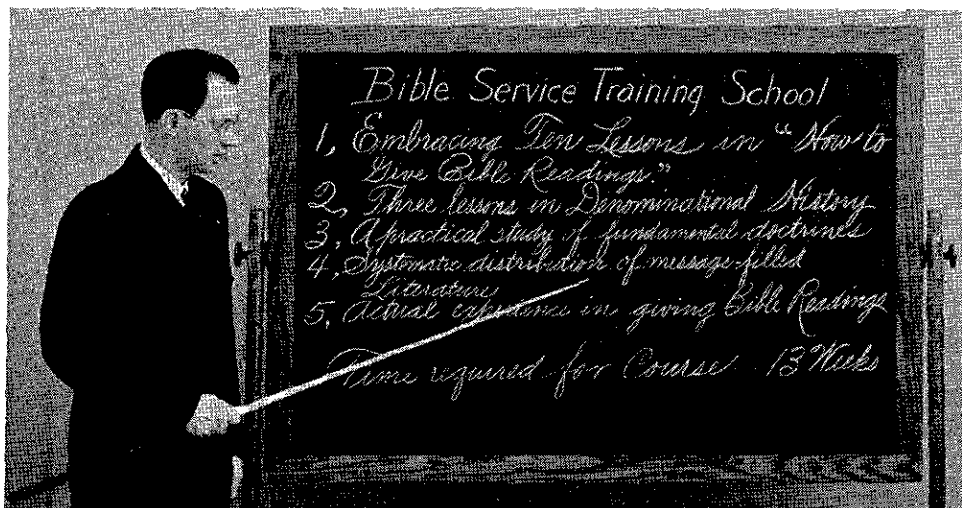 Bible Service Training School
1, Embracing Ten Lessons in "How to
Give Bible Readings."
2, Three lessons in Denominational History
3, A practical study of fundamental doctrines
4, Systematic distribution of message-filled
Literature
5, Actual experience in giving Bible Readings
Time required for Course 13 Weeks